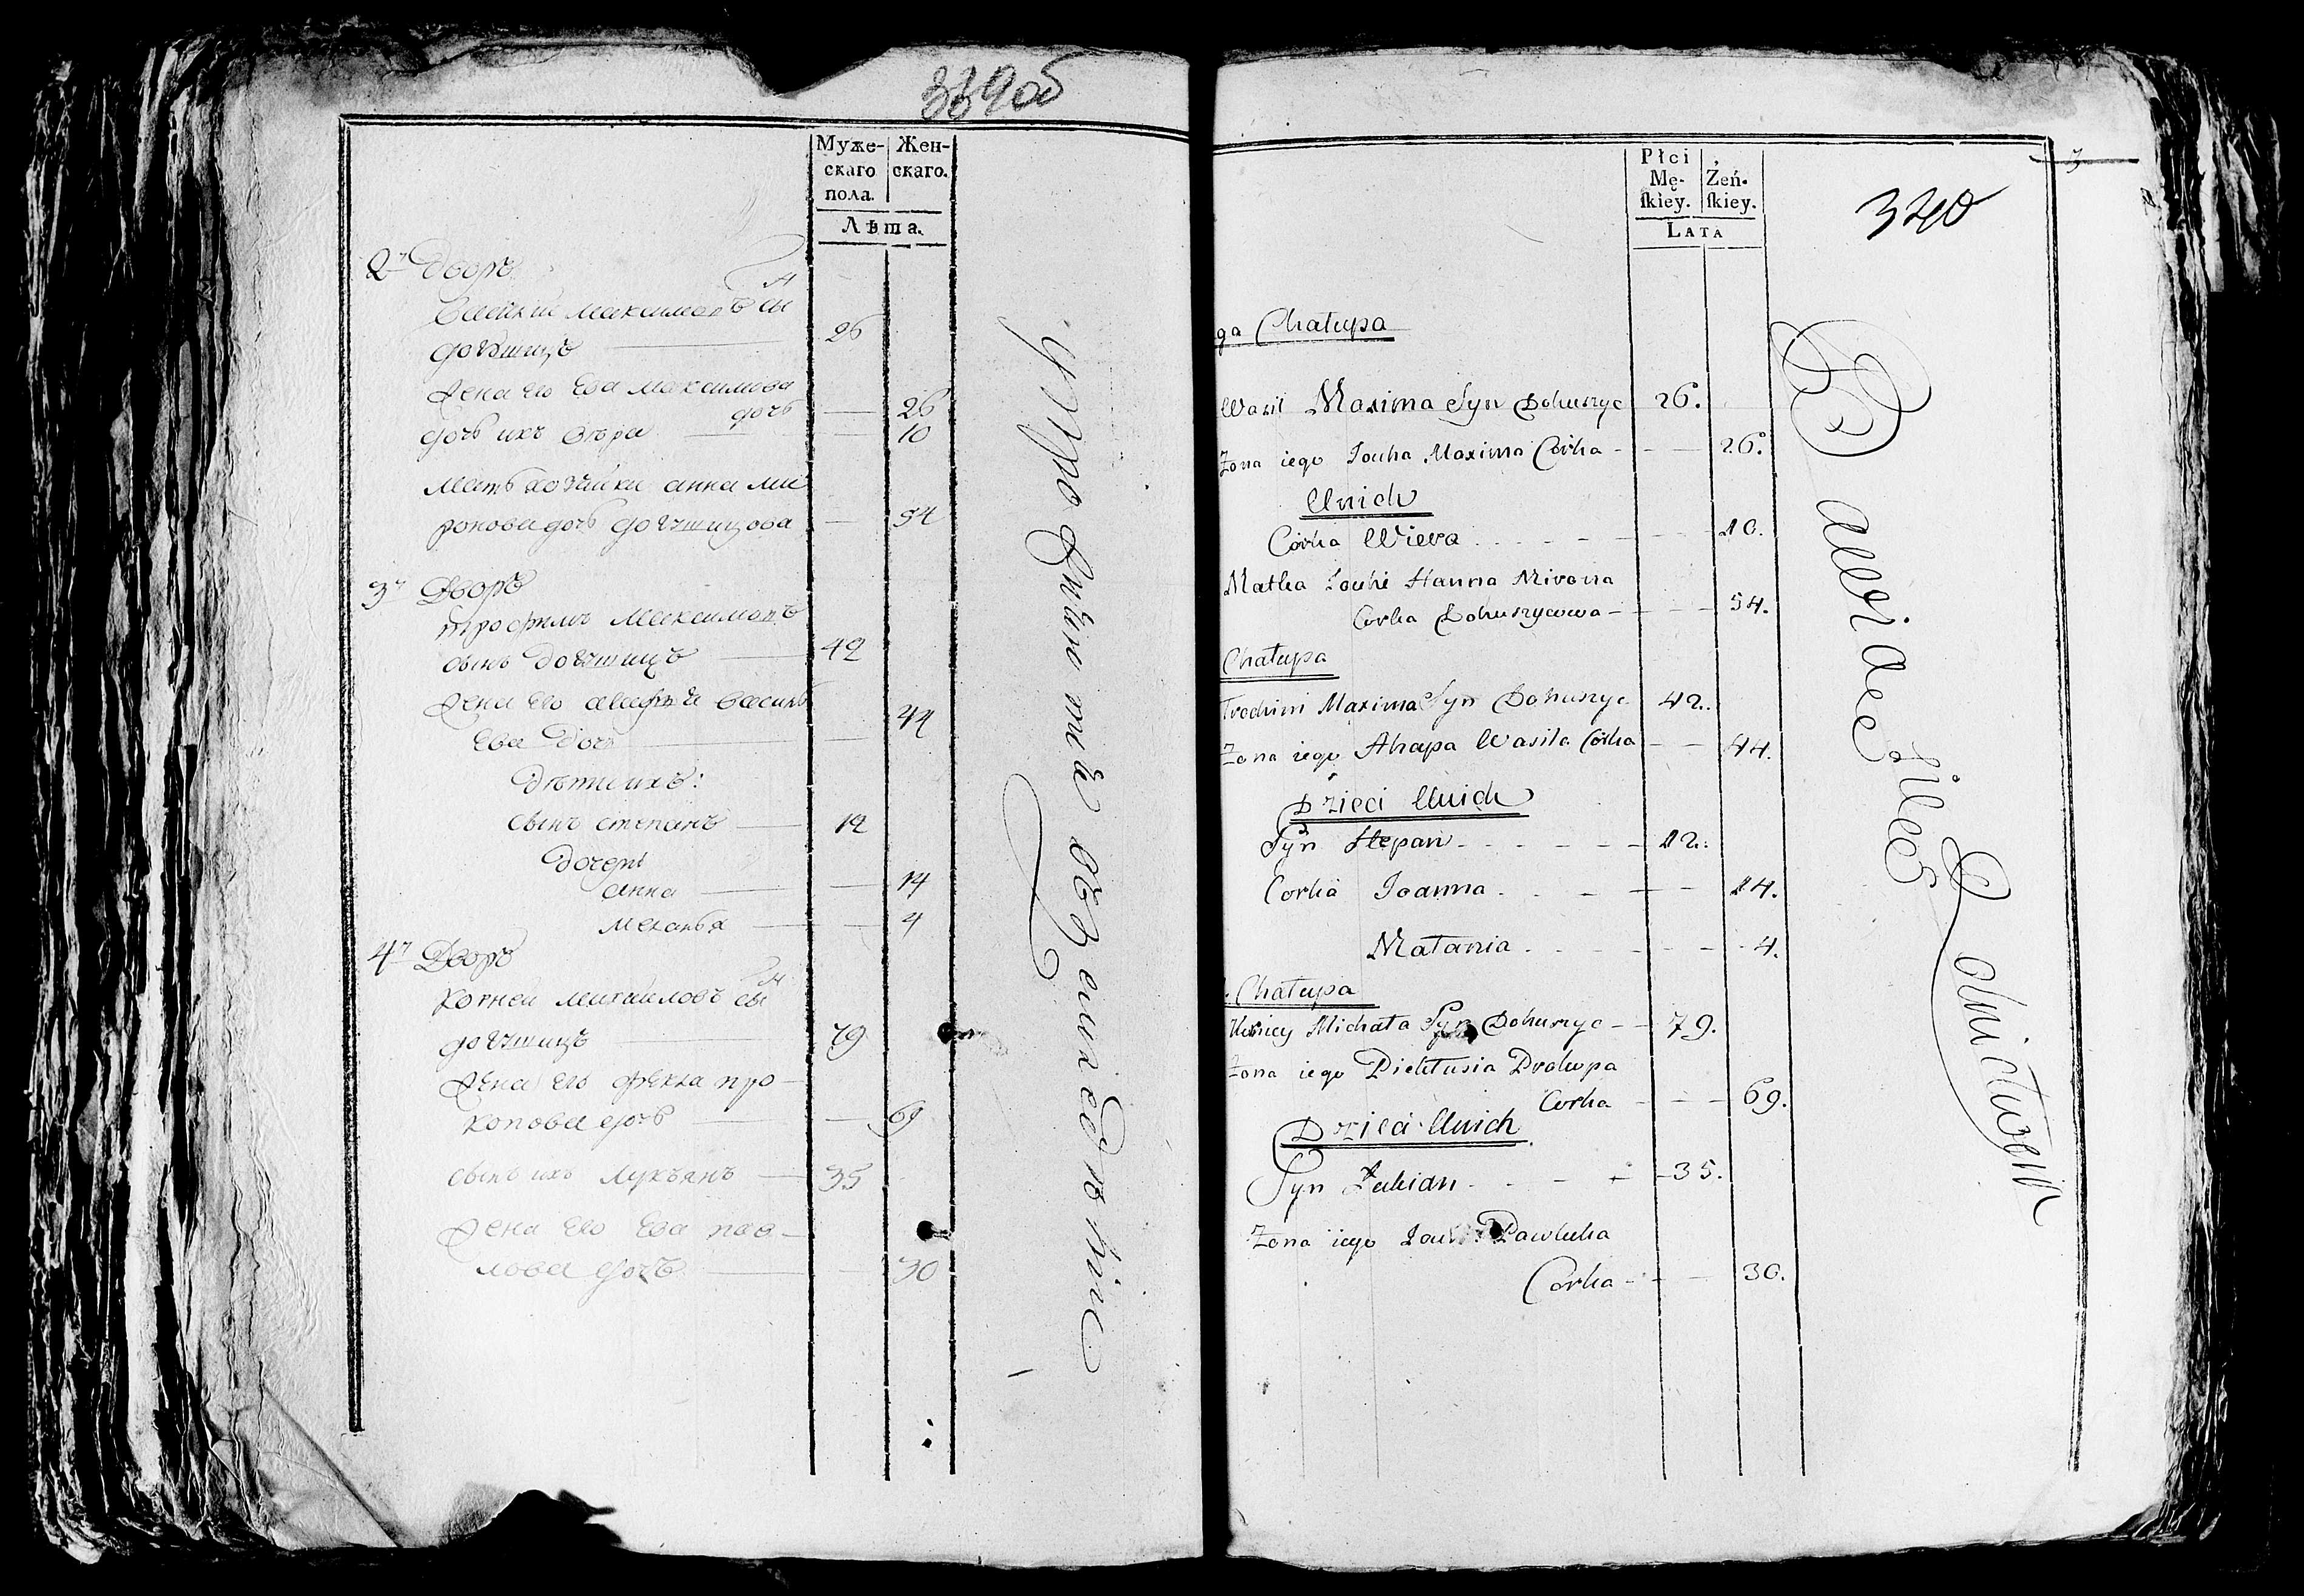 339об
Муже-
скаго
пола.
Жен-
скаго.
Лѣта.
2й Дворъ
Василий Максимовъ сы
н
Догушицъ 26
Жена его Ева Максимова
дочь 26
дочь ихъ Вѣра 10
Мать хозяйки Анна Ми
ронова дочь Догушицова 54
3й Дворъ
Трофимъ Максимовъ
сынъ Догушицъ 42
Жена его Агафья Василь
ева дочь 44
Дѣти ихъ:
сынъ Степанъ 12
Дочери
Анна 14
Меланья 4
4й Дворъ
Корней Михайловъ сы
н
Догушицъ 79
Жена его Фекла Про-
копова дочь 69
сынъ ихъ Лукъянъ 35
Жена его Ева Пав-
лова дочь 30
Płci
Mę-
skiey.
Żeń-
skiey.
LATA
3
340
ga Chałupa
Wasil Maxima Syn Dohuszyc 26.
Żona iego Jouha Maxima Córka 26.
Unich
Córka Wiera 10.
Matka Jouhi Hanna Mirona
Corka Dohuszycowa 54.
Chałupa
Trochim Maxima Syn Dohuszyc 42.
Żona iego Ahapa Wasila Córka 44.
Dzieci Unich
Syn Stepan 12.
Corka Joanna 14.
Małania 4.
Chałupa
Michała Syn Dohuszyc 79.
Żona iego Prokopa
Corka 69.
Dzieci Unich
Syn Łukian 35.
Żona iego Pawluka
Corka 30.